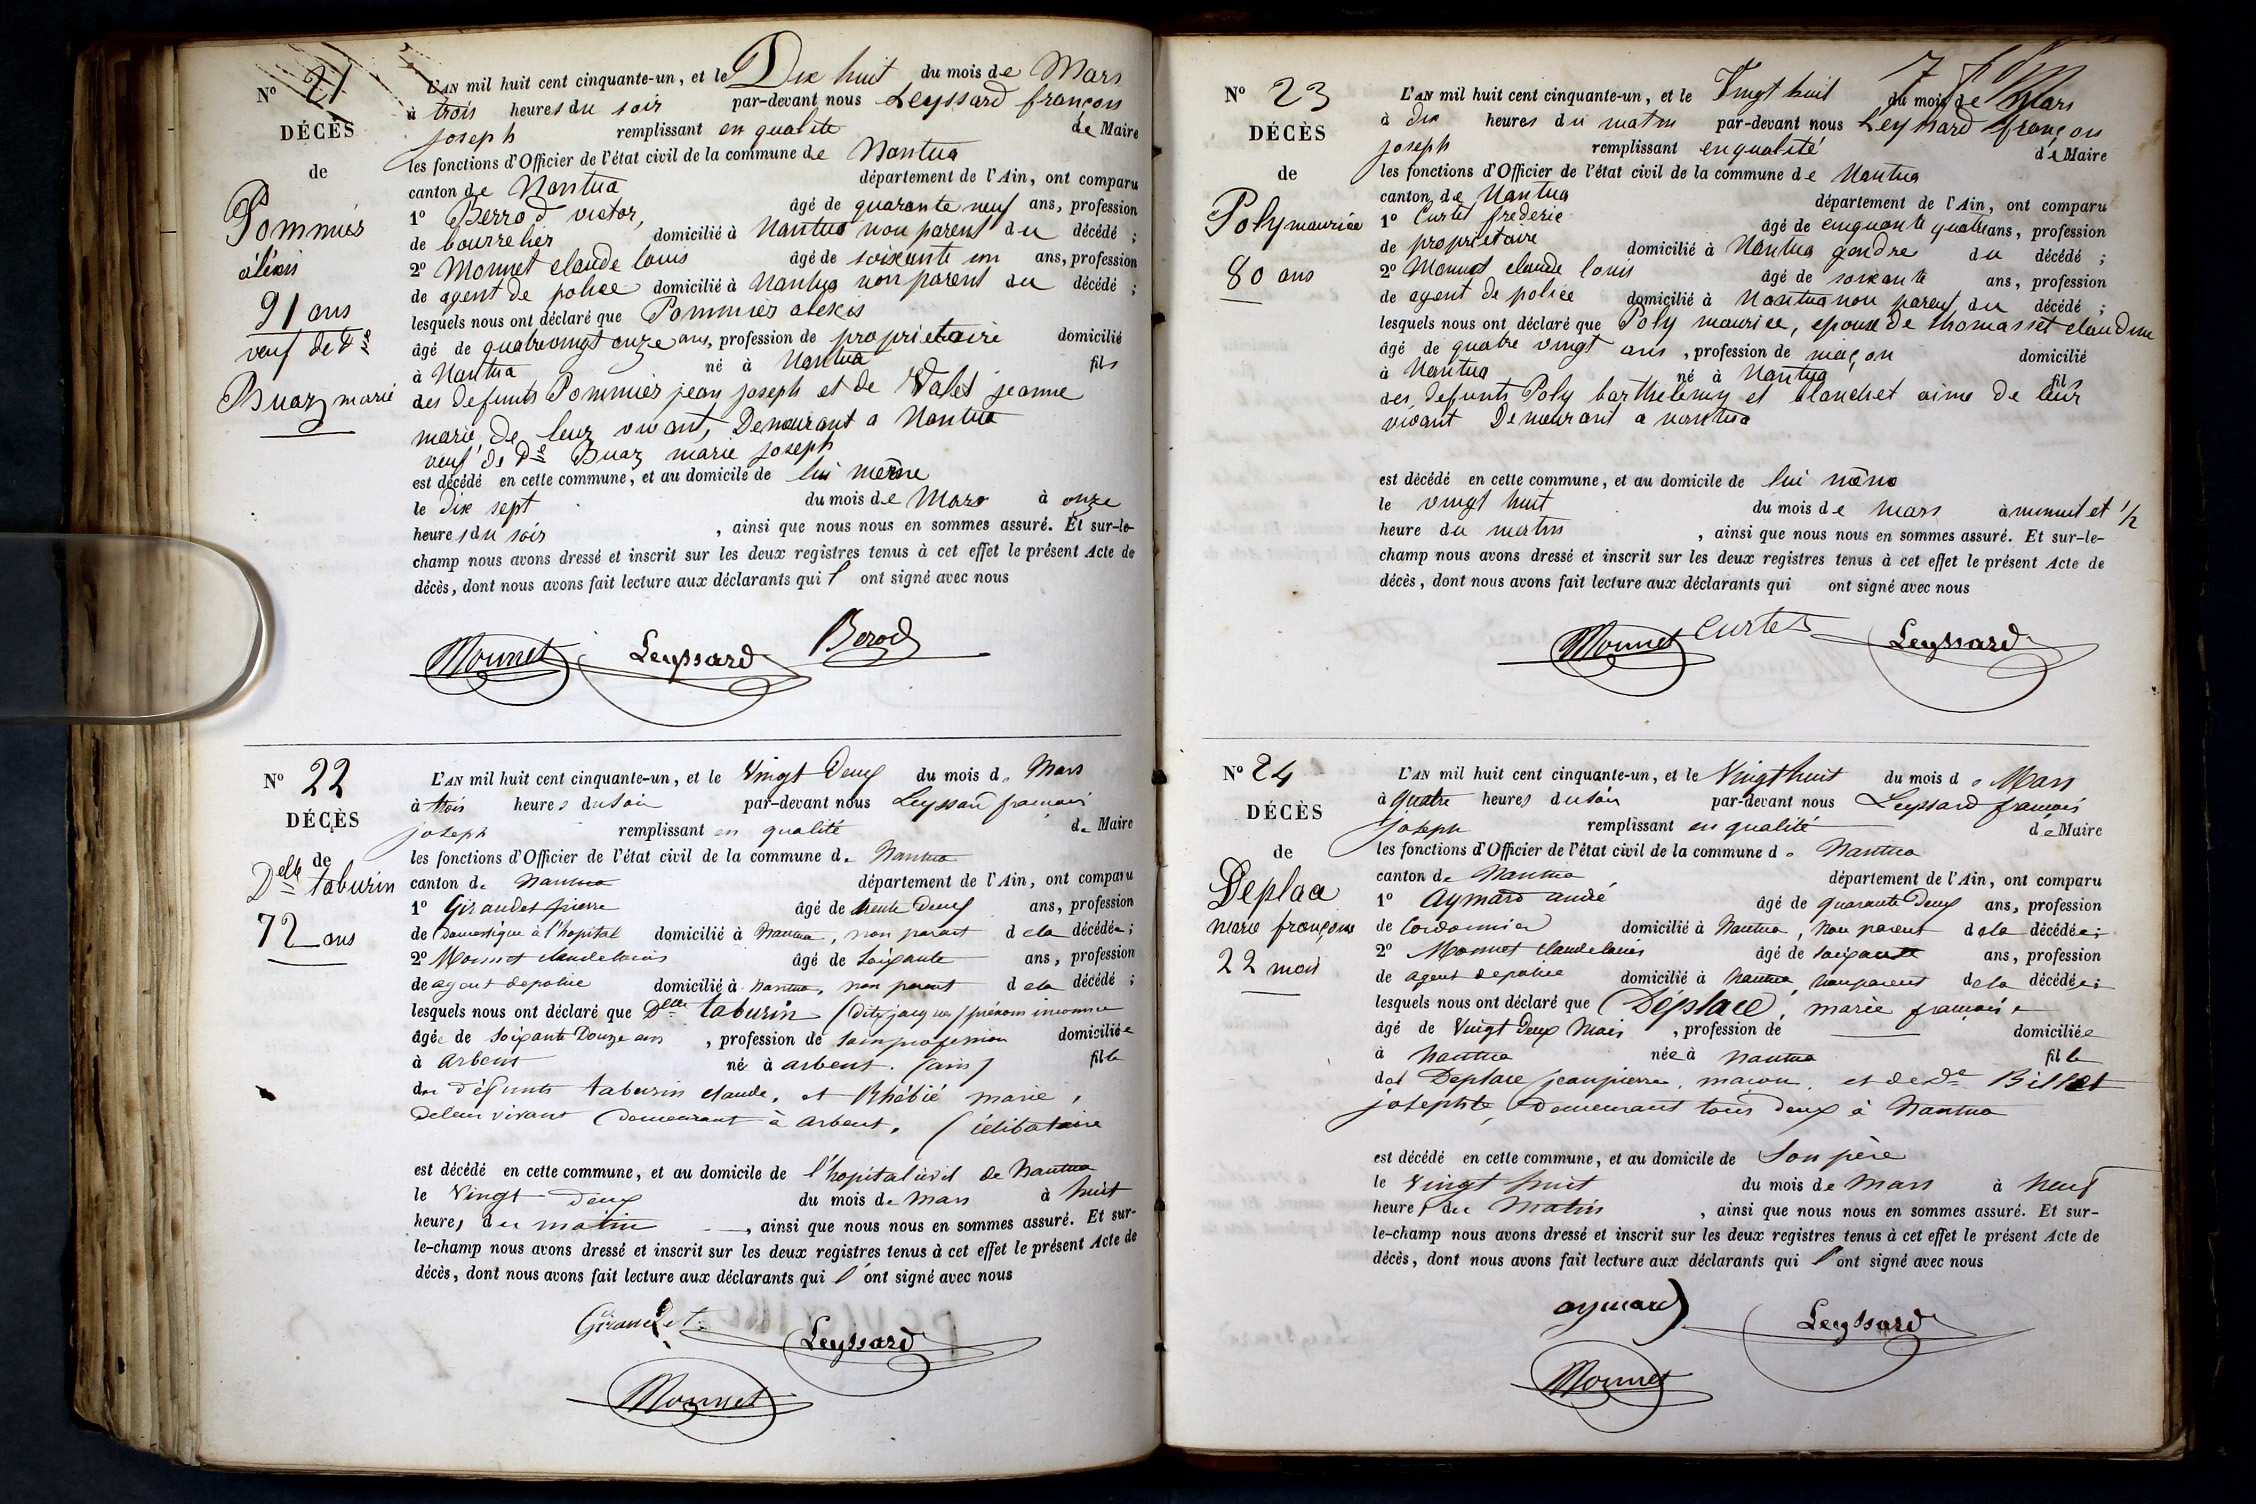 Nº 21
DÉCÈS
de
Pommier
aléxis
91 ans
veuf de De
Buaz marie
L'AN mil huit cent cinquante-un, et le Dix huit du mois de Mars
à trois heures du soir par-devant nous Leyssard françois
joseph remplissant en qualité de Maire
les fonctions d'Officier de l'état civil de la commune de Nantua
canton de Nantua département de l'Ain, ont comparu
1º Berrod victor, âgé de quarante neuf ans, profession
de bourrelier domicilié à Nantua non parent du décédé ;
2º Monnet claude louis âgé de soixante un ans, profession
de agent de police domicilié à Nantua non parent du décédé ;
lesquels nous ont déclaré que Pommier alexis
âgé de quatrevingt onze ans, profession de propriétaire domicilié
à Nantua né à Nantua fils
des defunts Pommier jean joseph et de Valet jeanne
marie, de leur vivant, Demeurant a Nantua
veuf de De Buaz marie joseph
est décédé en cette commune, et au domicile de lui même
le dix sept du mois de Mars à onze
heures du soir , ainsi que nous nous en sommes assuré. Et sur-le-
champ nous avons dressé et inscrit sur les deux registres tenus à cet effet le présent Acte de
décès, dont nous avons fait lecture aux déclarants qui l' ont signé avec nous
Monnet Leyssard Berod
Nº 22
DÉCÈS
de
Delle taburin
72 ans
L'AN mil huit cent cinquante-un, et le Vingt Deux du mois de Mars
à trois heures du soir par-devant nous Leyssard françois
joseph remplissant en qualité de Maire
les fonctions d'Officier de l'état civil de la commune de Nantua
canton de Nantua département de l'Ain, ont comparu
1º Giraudet pierre âgé de trente Deux ans, profession
de Domestique à l'hopital domicilié à Nantua, non parent de la décédée ;
2º Monnet claude louis âgé de soixante ans, profession
de agent de police domicilié à Nantua, non parent de la décédé ;
lesquels nous ont déclaré que Delle taburin (dite jacques) prénom inconnu
âgée de soixante Douze ans , profession de sans profession domiciliée
à arbent né à arbent (ain) fille
des défunts taburin claude, et Rhébié marie,
de leur vivant demeurant à arbent. Célibataire
est décédé en cette commune, et au domicile de l'hopital civil de Nantua
le Vingt deux du mois de Mars à huit
heures du matin , ainsi que nous nous en sommes assuré. Et sur-
le-champ nous avons dressé et inscrit sur les deux registres tenus à cet effet le présent Acte de
décès, dont nous avons fait lecture aux déclarants qui l' ont signé avec nous
Giraudet Leyssard
Monnet
Nº 23
DÉCÈS
de
Poly maurice
80 ans
L'AN mil huit cent cinquante-un, et le Vingt huit du mois de Mars
à dix heures du matin par-devant nous Leyssard françois
joseph remplissant en qualité de Maire
les fonctions d'Officier de l'état civil de la commune de Nantua
canton de Nantua département de l'Ain, ont comparu
1º Curtet frederic âgé de cinquante quatre ans, profession
de propriétaire domicilié à Nantua gendre du décédé ;
2º Monnet claude louis âgé de soixante ans, profession
de agent de police domicilié à Nantua non parent du décédé ;
lesquels nous ont déclaré que Poly maurice, epoux de thomasset claudine
âgé de quatre vingt ans , profession de maçon domicilié
à Nantua né à Nantua fils
des defunts Poly barthelemy et blanchet aime de leur
vivant Demeurant a nantua
est décédé en cette commune, et au domicile de lui même
le vingt huit du mois de mars à minuit et 1/2
heure du matin , ainsi que nous nous en sommes assuré. Et sur-le-
champ nous avons dressé et inscrit sur les deux registres tenus à cet effet le présent Acte de
décès, dont nous avons fait lecture aux déclarants qui ont signé avec nous
Monnet Curtet Leyssard
Nº 24
DÉCÈS
de
Deplace
marie françoise
22 mois
L'AN mil huit cent cinquante-un, et le Vingt huit du mois de Mars
à quatre heures du soir par-devant nous Leyssard françois
joseph remplissant en qualité de Maire
les fonctions d'Officier de l'état civil de la commune de Nantua
canton de Nantua département de l'Ain, ont comparu
1º Aymard andré âgé de quarante Deux ans, profession
de Cordonnier domicilié à Nantua, non parent de la décédée ;
2º Monnet claude louis âgé de soixante ans, profession
de agent de police domicilié à Nantua non parent de la décédée ;
lesquels nous ont déclaré que Déplace, marie françoise
âgé de Vingt Deux Mois , profession de domiciliée
à Nantua née à Nantua fille
de Deplace jean pierre, maçon, et de De Billet
josephte, demeurant tous deux à Nantua
est décédé en cette commune, et au domicile de Son père
le Vingt huit du mois de Mars à neuf
heures du Matin , ainsi que nous nous en sommes assuré. Et sur-
le-champ nous avons dressé et inscrit sur les deux registres tenus à cet effet le présent Acte de
décès, dont nous avons fait lecture aux déclarants qui l' ont signé avec nous
aymard Leyssard
Monnet